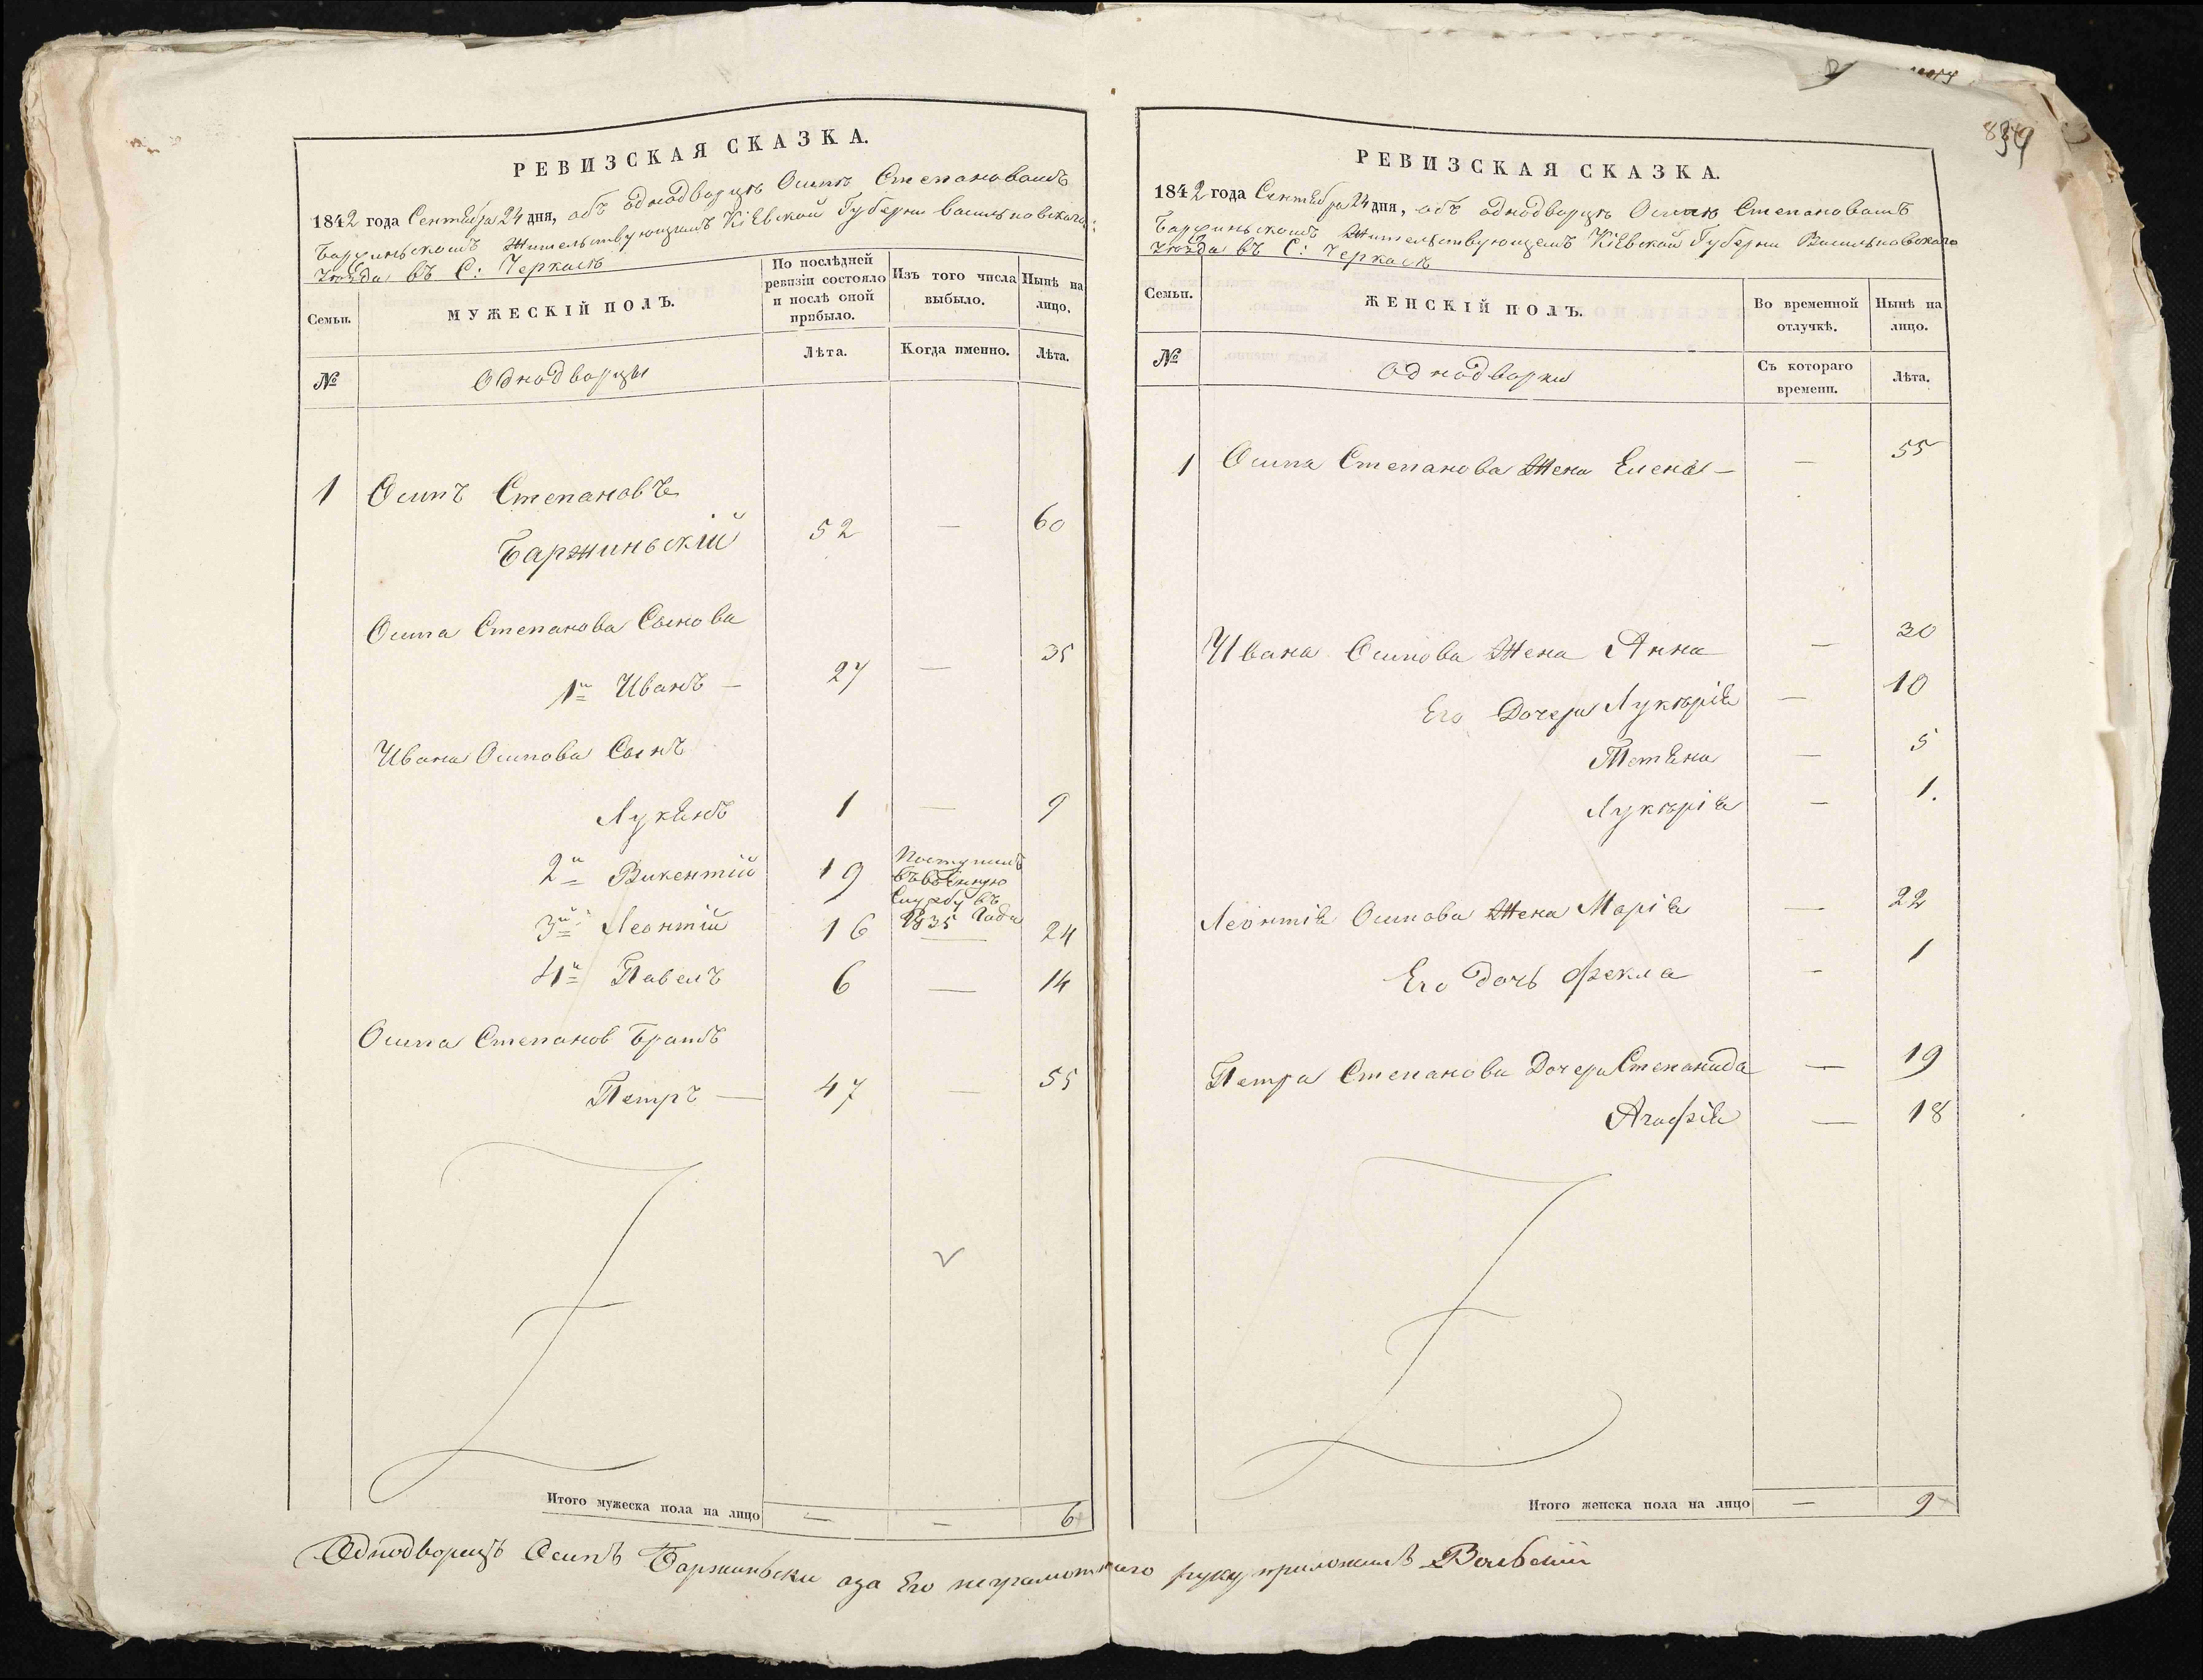 РЕВИЗСКАЯ СКАЗКА.
1842 года Сентября 24 дня, объ однодворцѣ Осипѣ Степановомъ
Баржиньскомъ Жительствующимъ Кіевской Губерни Васильковскаго
Уѣзда въ С: Черкасѣ
Семьи.
МУЖЕСКІЙ ПОЛЪ.
По послѣдней ревизіи состояло и послѣ оной прибыло.
Изъ того числа выбыло.
Нынѣ на лицо.
№
Однодворцы
Лѣта.
Когда именно.
Лѣта.
1 Осипъ Степановъ
Баржиньскій 52 — 60
Осипа Степанова Сынова
1й Иванъ — 27 — 35
Ивана Осипова Сынъ
Лукянъ 1 — 9
2й Викентій 19 Поступилъ въ воѣнную Службу въ 1835 Года
3й Леонтій 16 — 24
4й Павелъ 6 — 14
Осипа Степанов Братъ
Петръ — 47 — 55
Итого мужеска пола на лицо — — 6
РЕВИЗСКАЯ СКАЗКА.
1842 года Сентября 24 дня, объ однодворцѣ Осипѣ Степановомъ
Баржиньскомъ Жительствующемъ Кіевской Губерни Васильковского
Уѣзда въ С: Черкасѣ
Семьи.
ЖЕНСКІЙ ПОЛЪ.
Во временной отлучкѣ.
Нынѣ на лицо.
№
Однодворки
Съ котораго времени.
Лѣта.
1 Осипа Степанова Жена Елена — — 55
Ивана Осипова Жена Анна — 30
Его Дочери Лукѣрія — 10
Тетяна — 5
Лукѣрія — 1.
Леонтія Осипова Жена Марія — 22
Его дочь Фекла — 1
Петра Степанова Дочери Степанида — 19
Агафія — 18
Итого женска пола на лицо — 9
Однодворецъ Осипъ Баржиньски аза Его неграмотнаго руку приложилъ